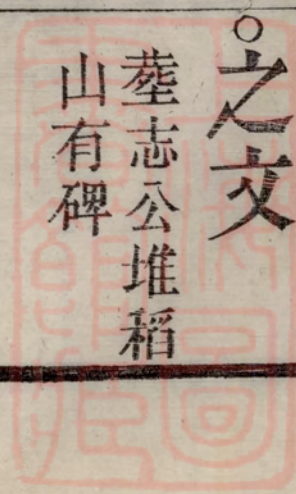 ○之文
塟志公堆稻
山有碑